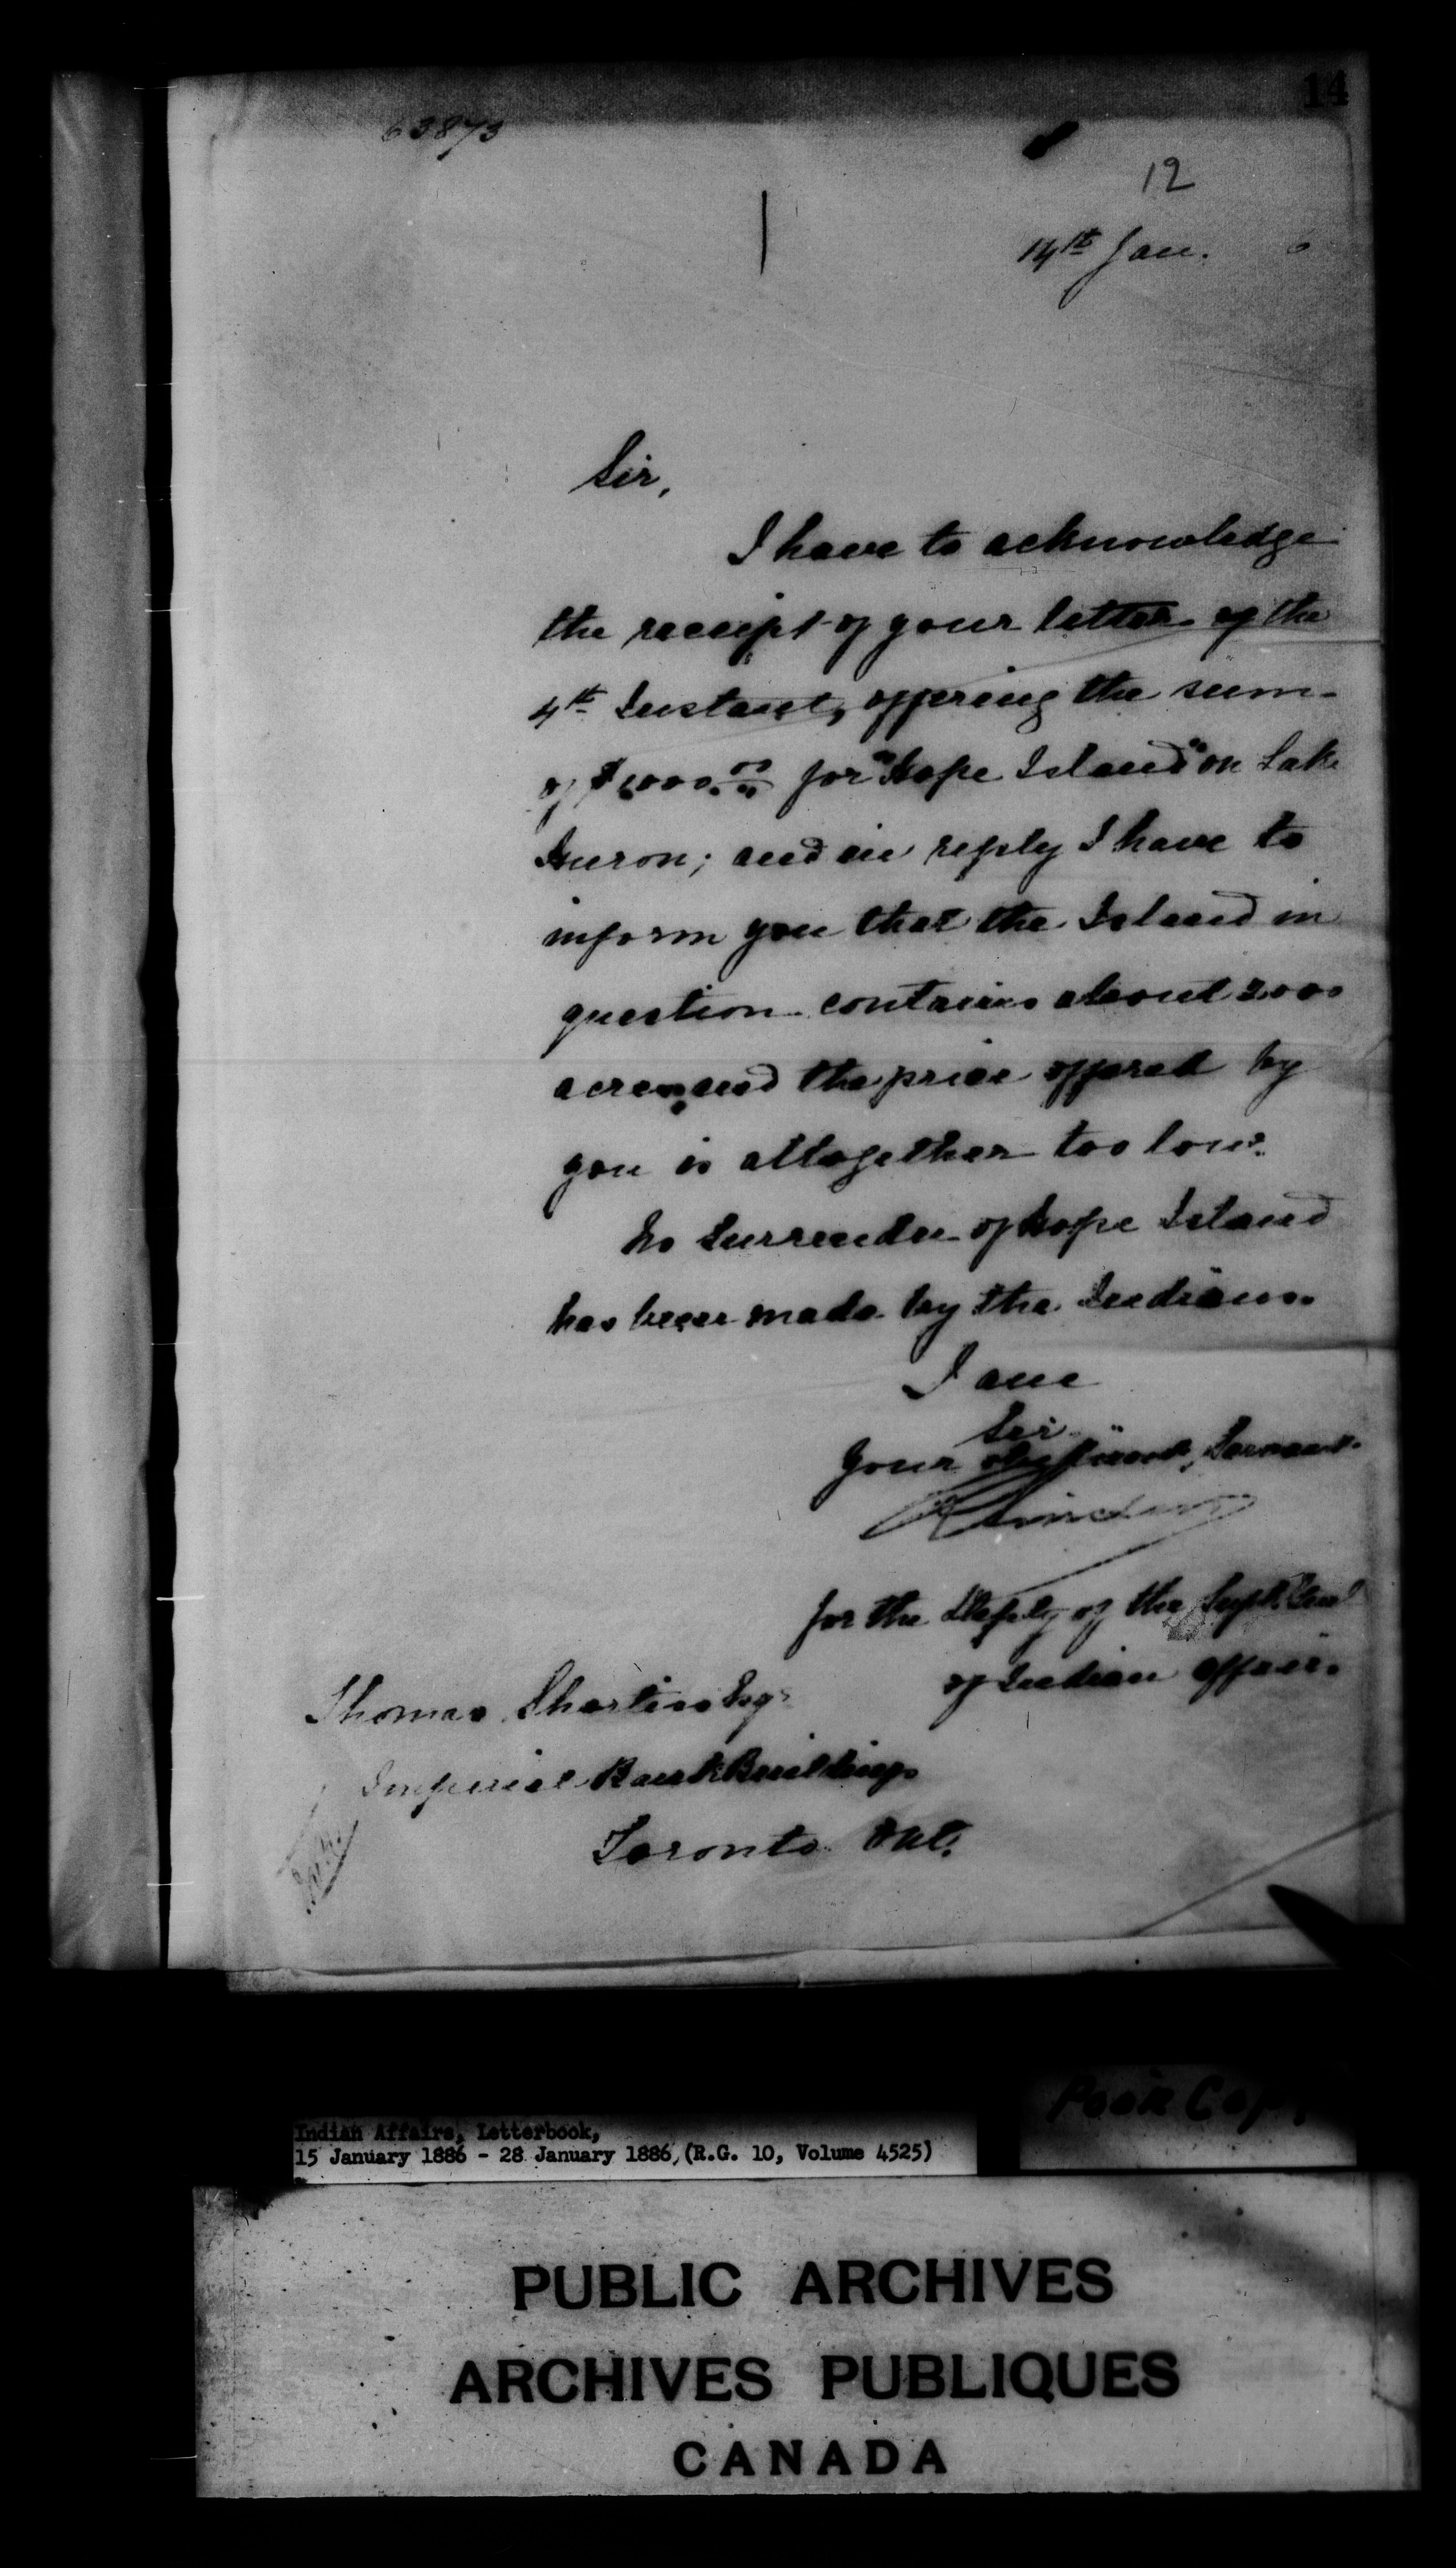 14
63873
12
14th Jan. 6
Sir,
I have to acknowledge
the receipt of your letter of the
4th Instant, offering the sum
of $1000.00 for "Hope Island" on Lake
Huron; and in reply I have to
inform you that the Island in
question contains about 2000
acres, and the price offered by
you is altogether too low.
No Surrender of Hope Island
has been made by the Indians.
I am
Sir
Your obedient Servant
for the Deputy of the Supt. Genl
of Indian Affairs
Thomas Esqr
Imperial Bank Buildings
Toronto Ont.
Poor Copy
Indian Affairs, Letterbook,
15 January 1886 - 28 January 1886, (R.G. 10, Volume 4525)
PUBLIC ARCHIVES
ARCHIVES PUBLIQUES
CANADA